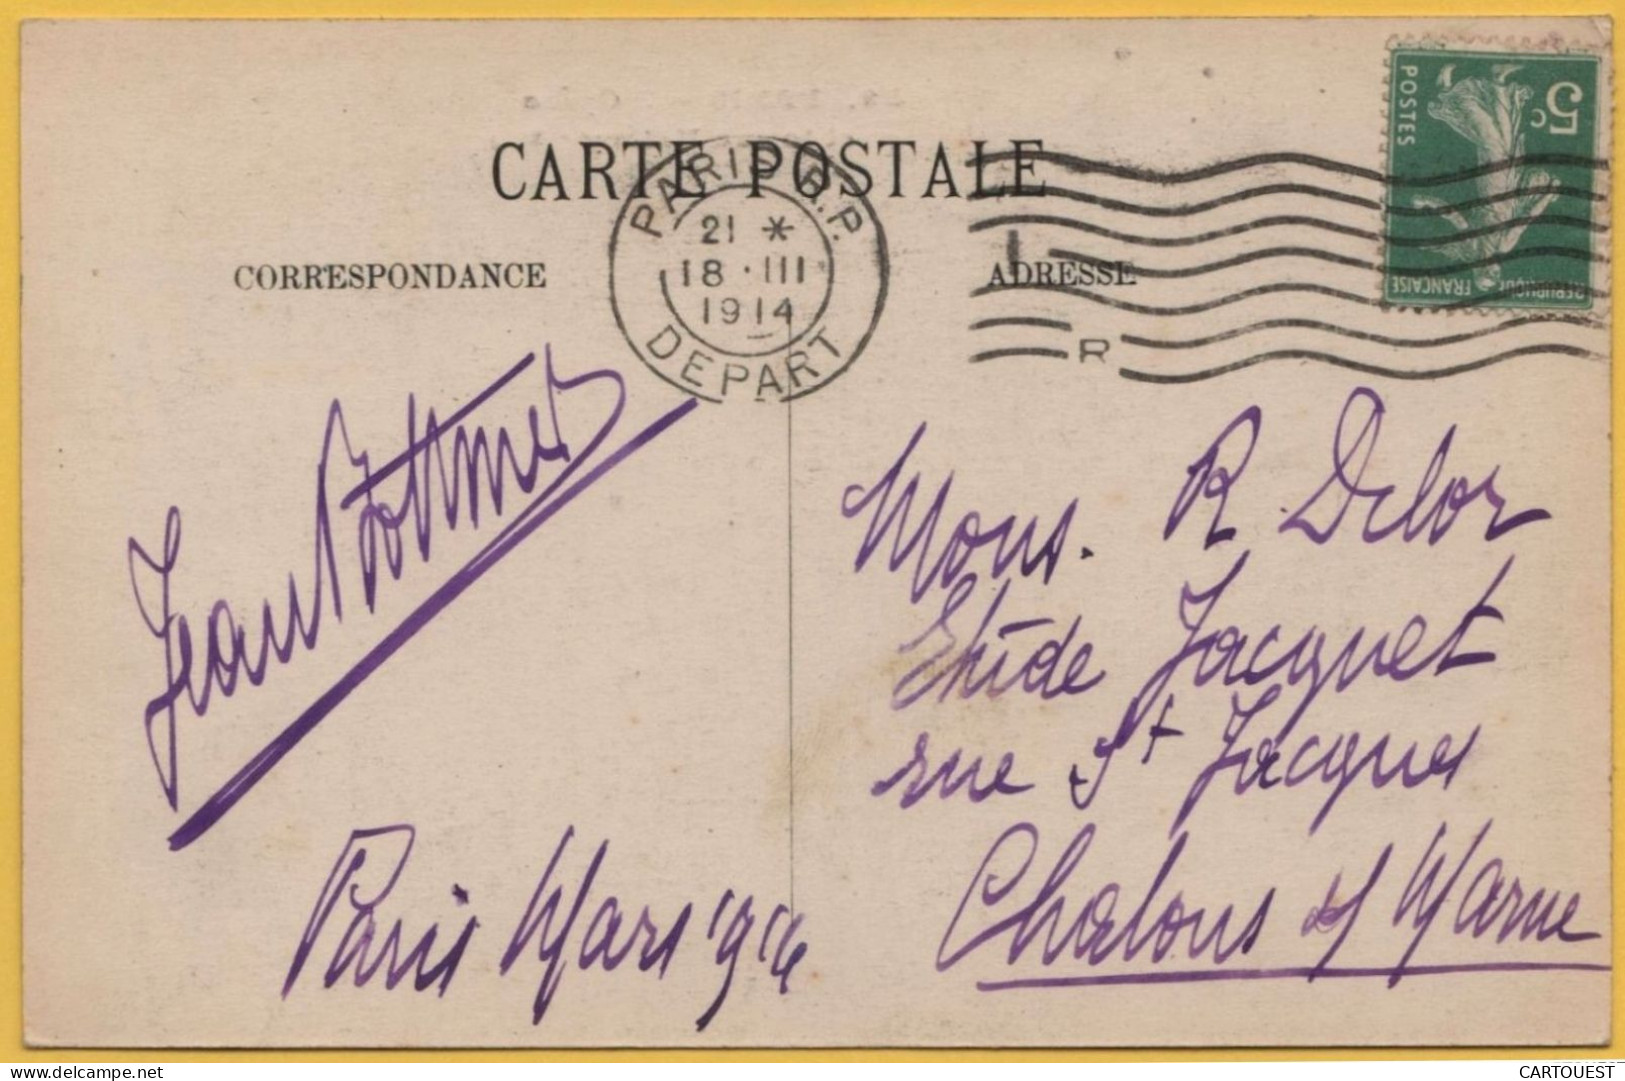 CARTE POSTALE
PARIS R.P.
21 *
18 · III
1914
DEPART
5c
POSTES
REPUBLIQUE FRANCAISE
CORRESPONDANCE
ADRESSE
R
Jean
Mons. R Delor
Etude Jacquet
rue St Jacques
Chalons s/ Marne
Paris Mars 1914
delcampe.net
CARTOUEST